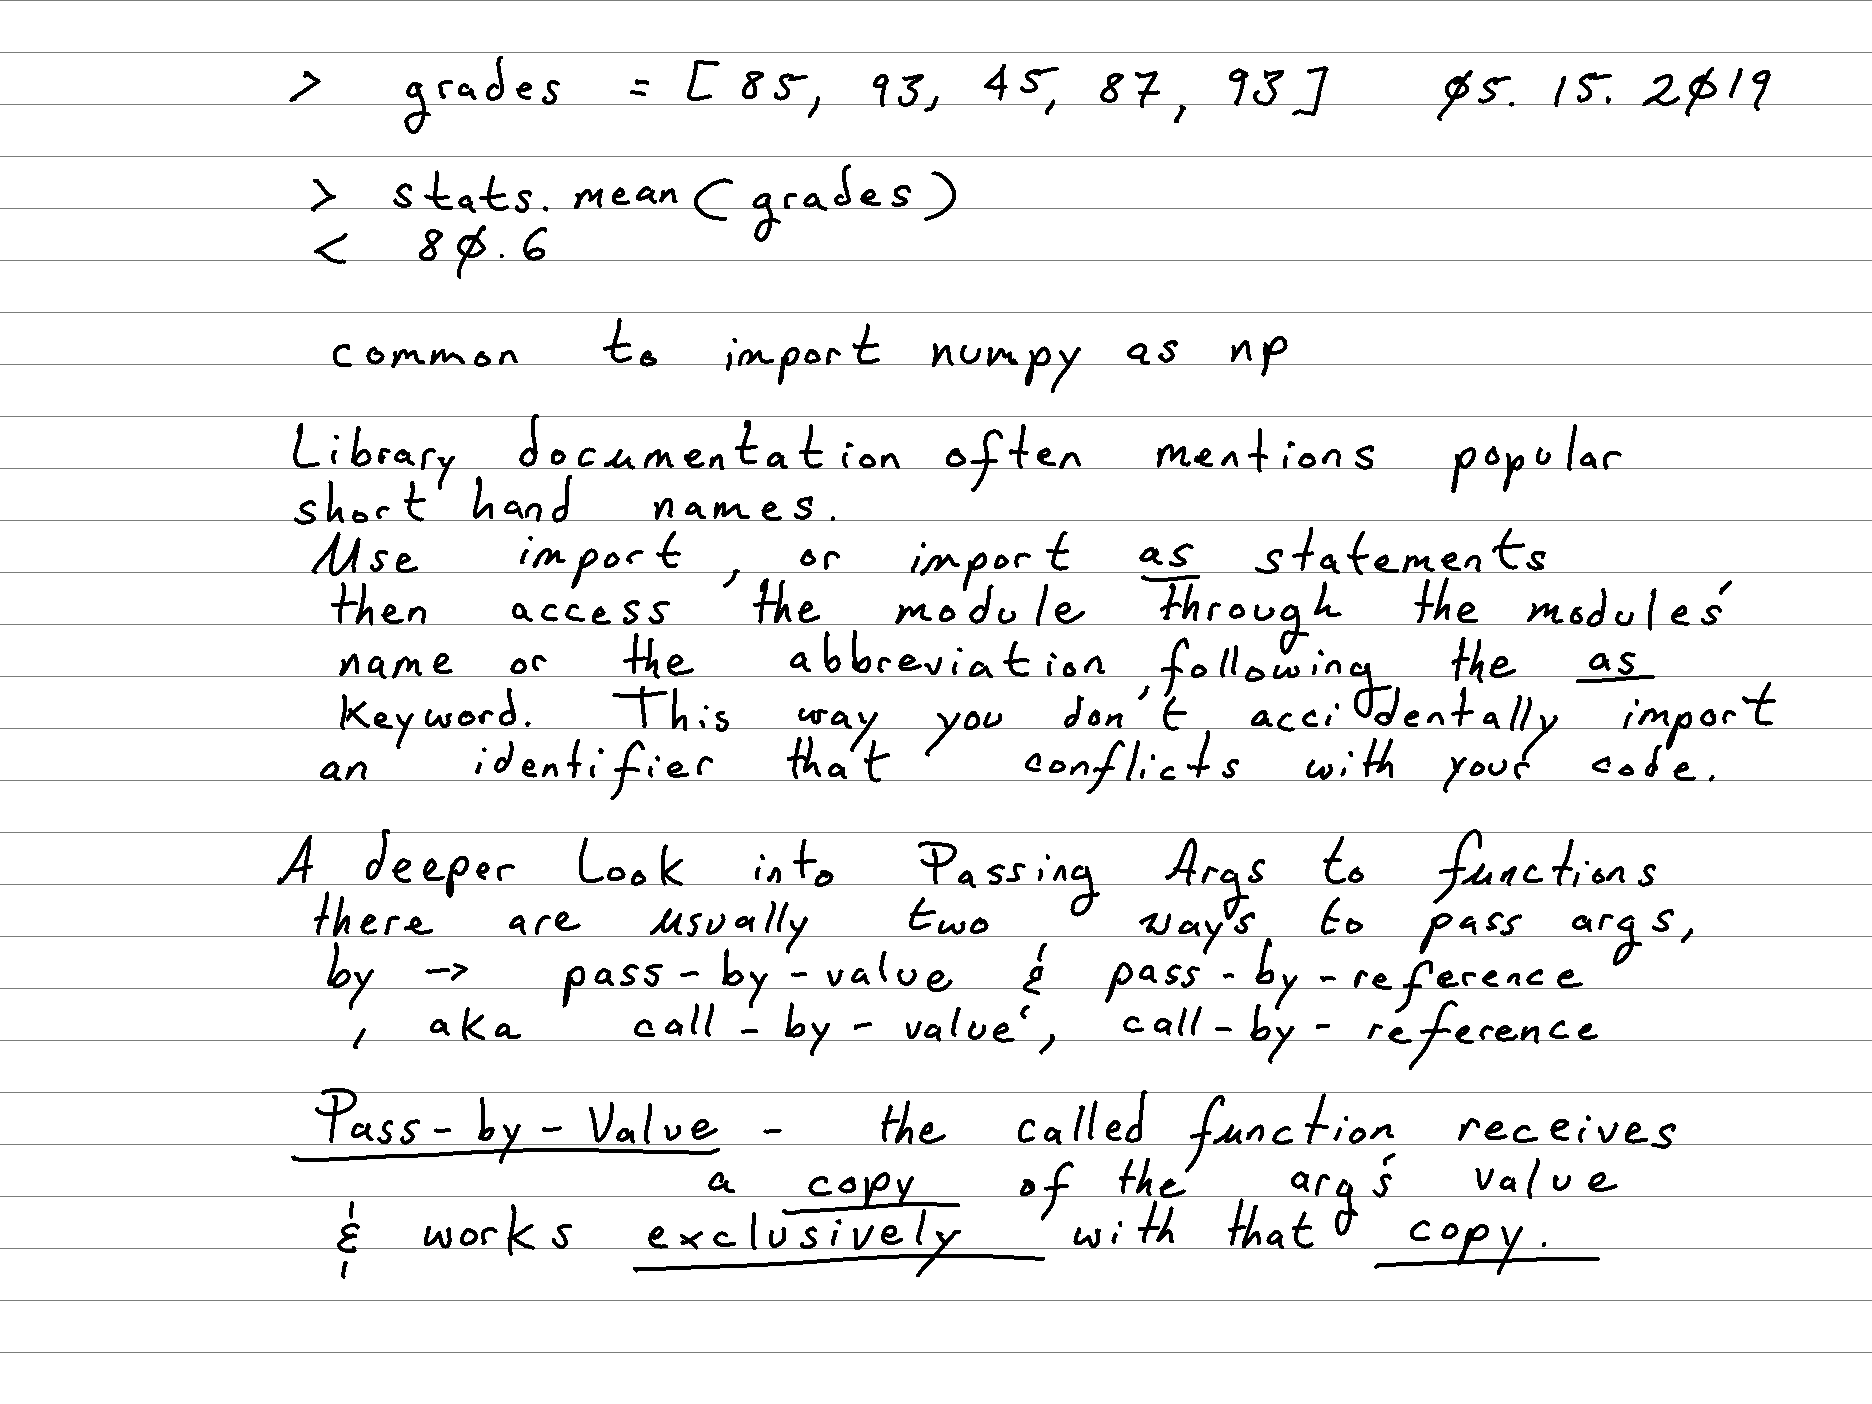 > grades = [ 85, 93, 45, 87, 93 ] 05. 15. 2019
> stats. mean ( grades )
< 80.6
common to import numpy as np
Library documentation often mentions popular
short hand names.
Use import, or import as statements
then access the module through the module's
name or the abbreviation following the as
keyword. This way, you don't accidentally import
an identifier that conflicts with your code.
A deeper Look into Passing Args to functions
there are usually two ways to pass args,
by -> pass-by-value & pass-by-reference
, aka call-by-value', call-by-reference
Pass-by-Value - the called function receives
a copy of the arg's value
& works exclusively with that copy.